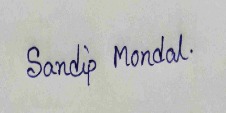 Sandip Mondal.